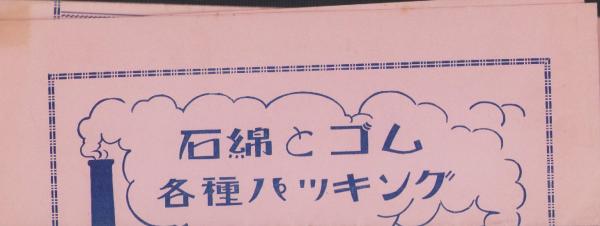 石綿とゴム
各種パツキング